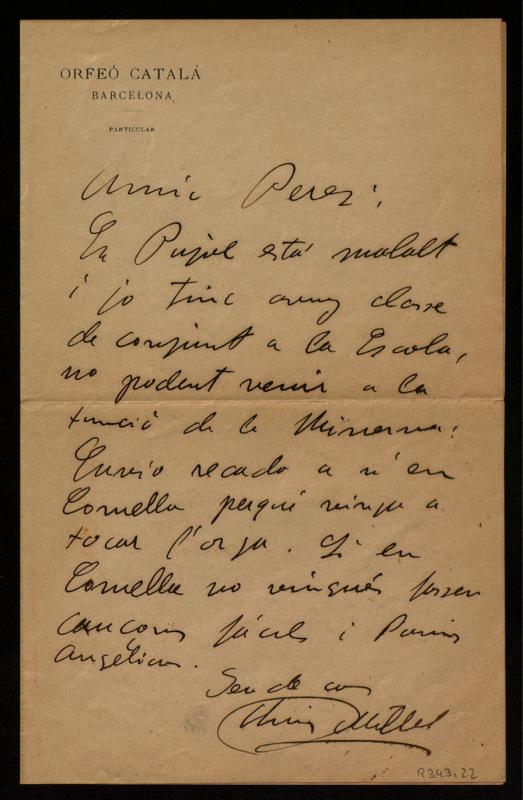 ORFEÓ CATALÁ
BARCELONA
PARTICULAR
Amic Perez:
En Pujol está malalt
i jo tinc avuy classe
de conjunt a la Escola,
no podent venir a la
funció de la Minerva:
Envio recado a n'en
Cornella perqué vinga a
tocar l'orga. Si en
Cornella no vingués fassen
cançons fácils i Panis
Angélicus.
Seu de cor
Lluis Millet
R343.22